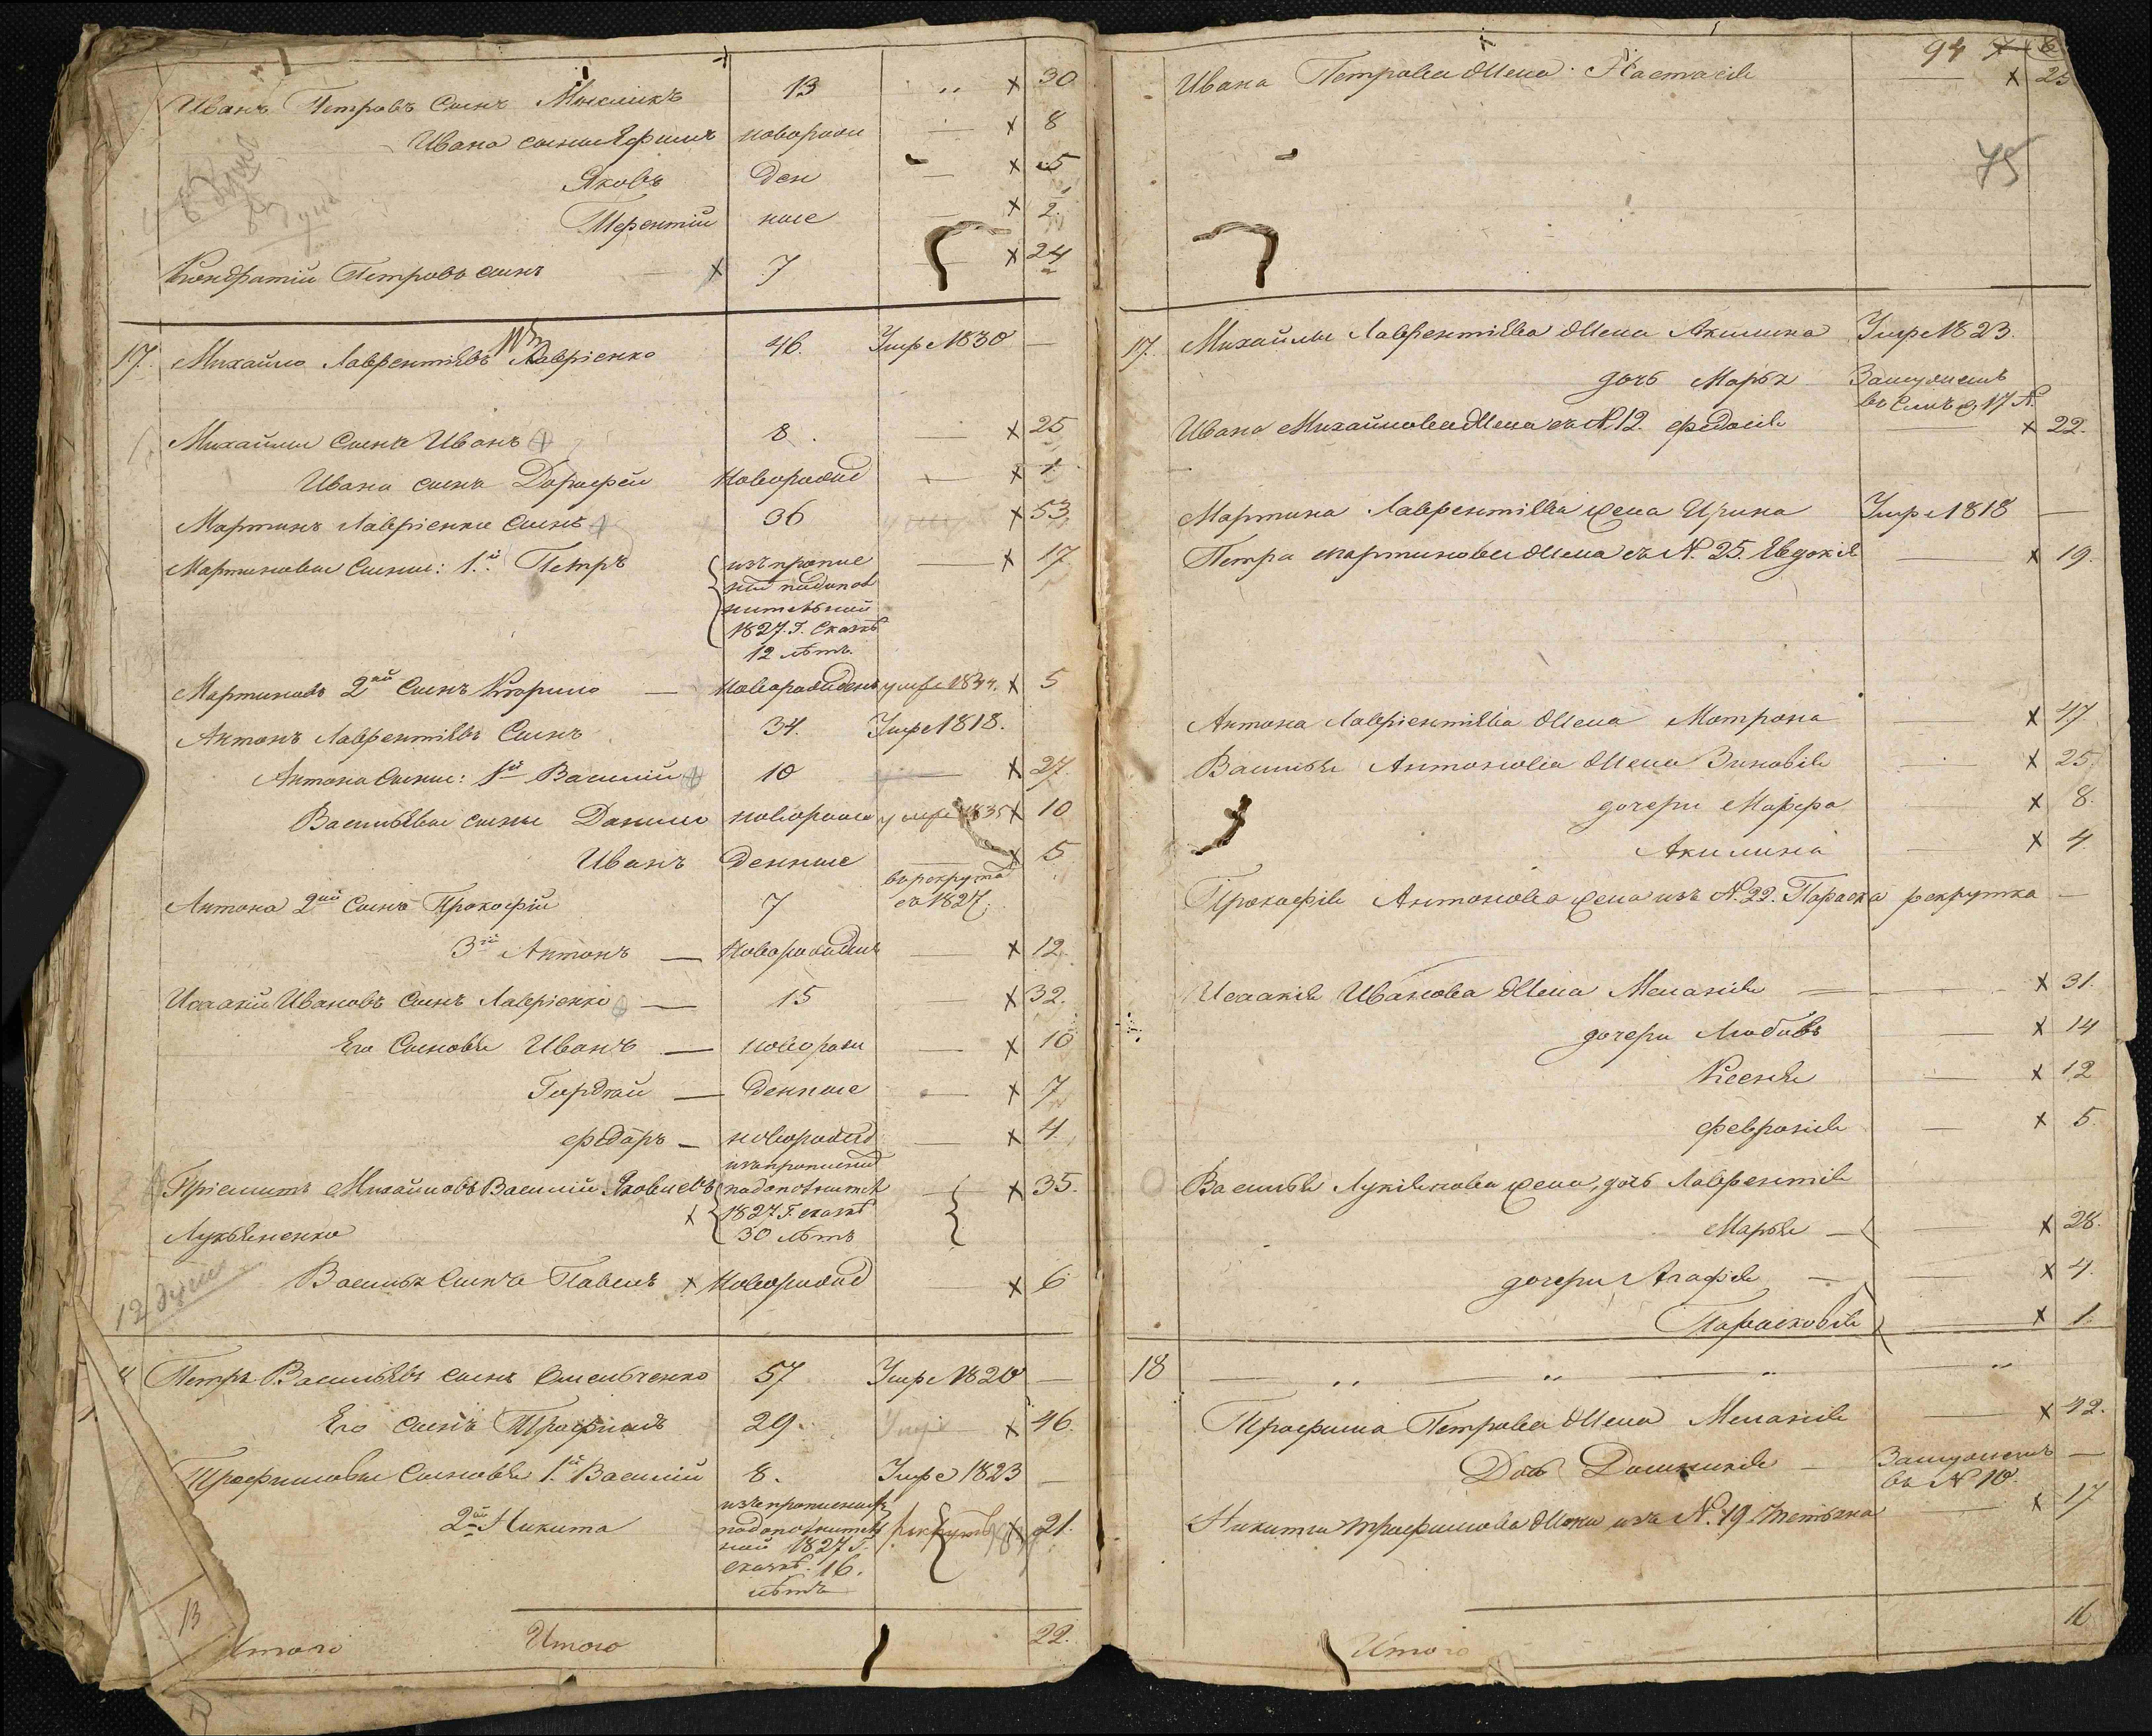 Иванъ Петровъ сынъ Мокликъ 13 „ х 30
Ивана сыны Ефимъ новорож — х 8
Яковъ ден — х 5
Терентій ные — х 2
Кондратій Петровъ сынъ х 7 — х 24
17. Михайло Лаврентіевъ Лавріенко 46. Умре 1830 —
Михайлы сынъ Иванъ 8. — х 25
Ивана сынъ Дорофей новорожд — х 1.
Мартинъ Лавріенко сынъ 36 х 53
Мартиновы сыны: 1й Петръ изъ пропис — х 17
ной подопол
нительной
1827. г. сказкѣ
12 лѣтъ.
Мартиновъ 2ой сынъ Кторило — новорожденъ умре 1834. х 5
Антонъ Лаврентіевъ сынъ 34. Умре 1818.
Антона сыны: 1й Василій 10 — х 27.
Васильевы сыны Данило новорож умре 1835 х 10
Иванъ денные — х 5
Антона 2ой сынъ Прокофій 7 въ рекрута
съ 1827.
3й Антонъ — новорожденъ — х 12.
Исаакій Ивановъ сынъ Лавріенко — 15 х 32.
Его сыновья Иванъ — новорож — х 10
Гордѣй — денные — х 7
Федоръ — новорожд — х 4.
Пріемышъ Михайловъ Василій Яковлевъ изъ прописной — х 35.
подополнител
Лукьяненко х 1827 г. сказкѣ
30 лѣтъ
Василья сынъ Павелъ х новорожд — х 6
12 душъ
Петръ Васильевъ сынъ Омельченко 57 Умре 1820 —
Его сынъ Трофимъ 29. х 46.
Трофимовы сыновья 1й Василій 8. Умре 1823 —
2й Никита изъ прописной рекрутъ х 21.
подополнител
ной 1827 г.
сказкѣ. 16.
лѣтъ
13
Итого Итого 22.
94
Ивана Петрова жена Настасія — х 25
75
17. Михайлы Лаврентіева жена Акилина Умре 1823.
дочь Марья Замужемъ
въ 17 №.
Ивана Михайлова жена съ №12. Федосія — х 22.
Мартина Лаврентіева жена Ирина Умре 1818 —
Петра Мартинова жена съ №. 25. Евдокія — х 19.
Антона Лаврентіева жена Матрона — х 47
Василья Антонова жена Зиновія — х 25.
дочери Марфа — х 8.
Акилина — х 4.
Прокофія Антонова жена изъ №. 22. Параска рекрутка —
Исаакія Иванова жена Меланія — х 31.
дочери Любовь — х 14
Ксенія — х 12
Февронія — х 5.
Василья Лукіянова жена, дочь Лаврентія
Марья — х 28.
дочери Агафія — х 4.
Парасковія — х 1.
18 — „ — „ — „ — „
Трофима Петрова жена Меланія — х 42.
Дочь Домникія — Замужемъ —
въ №10.
Никиты Трофимова жена изъ №. 19 Тетьяна — х 17
Итого 16